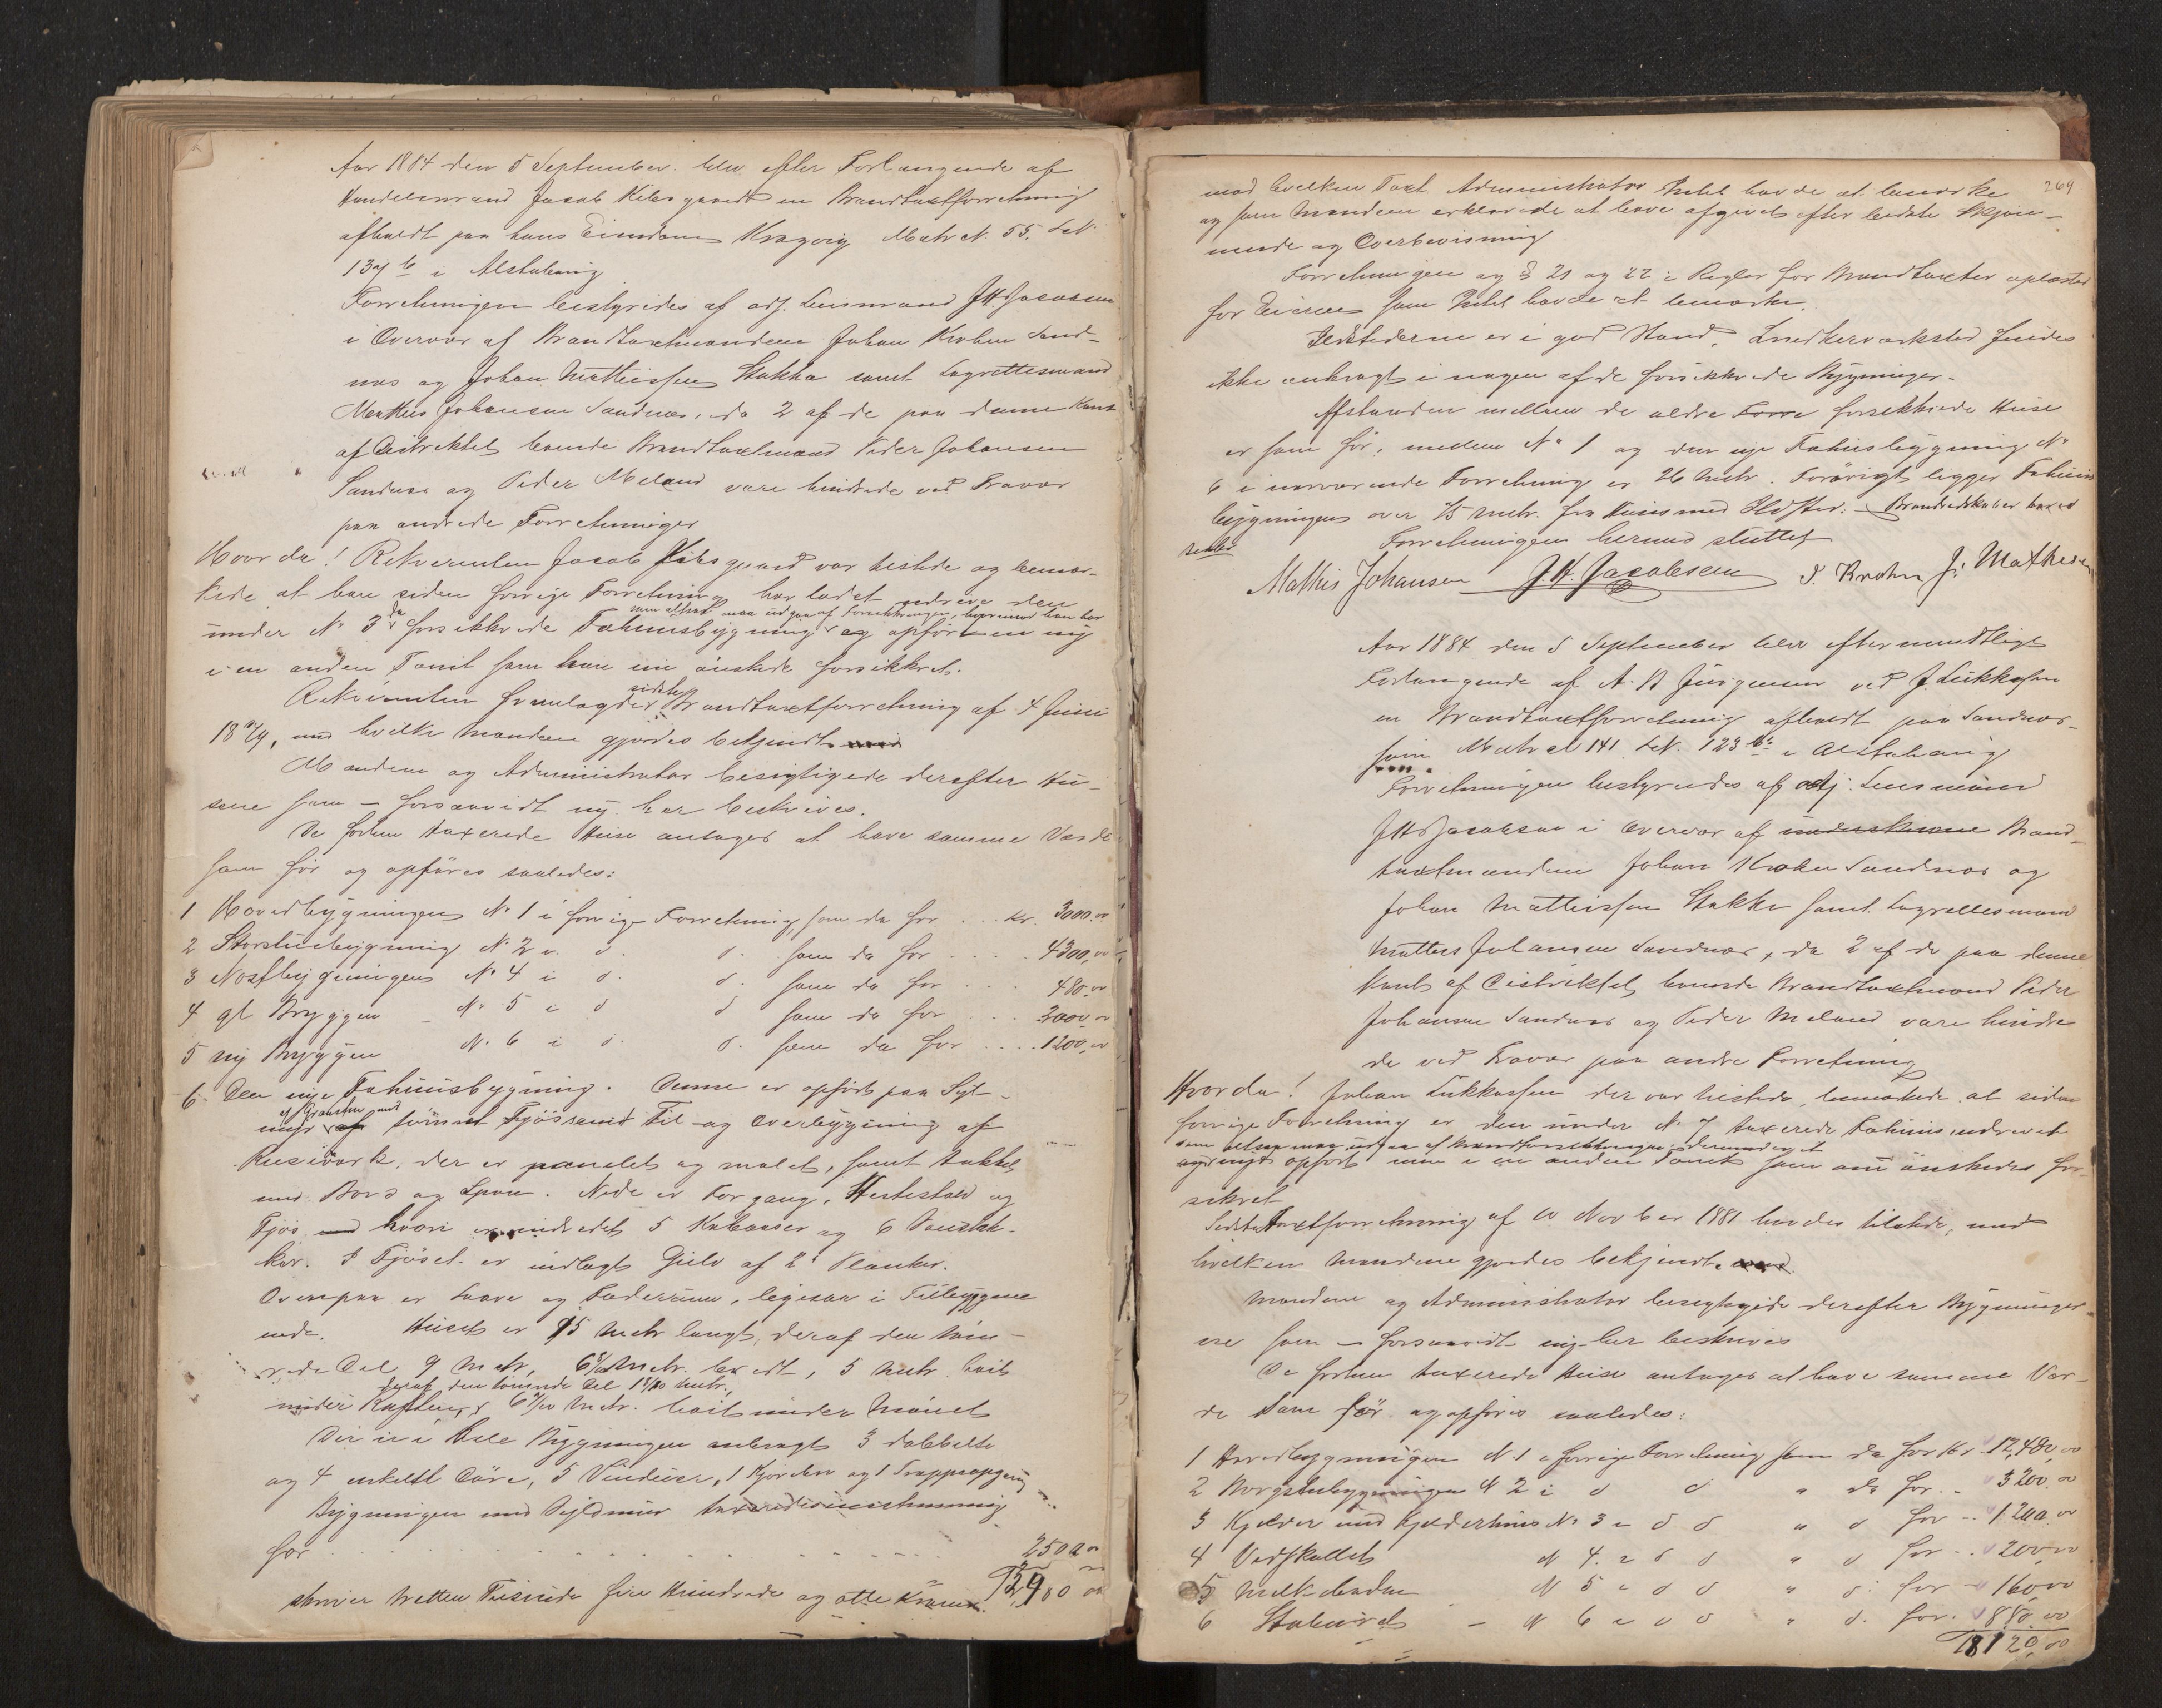 Aar 1884 den 5 September. blev efter Forlangende af
Handelsmand Jacob Kilsgaard en Brandtaxtforretning
afholdt paa hans Eiendom Kragvig Matr N. 55. LN
137 b i Alstahaug
Forretningen bestyredes af adj. Lensmand J H Jacobsen
i Overvær af Brandtaxtmændene Johan Krohn Sand-
næs og Johan Mathissen Stokka samt Lagrettesmand
Mathis Johansen Sandnæs, da 2 af de paa denne Kant
af Distriktet boende Brandtaxtmænd Peder Johansen
Sandnæs og Peder Meland vare hindrede ved Fravær
paa andre Forretninger
Hvor da! Rekvirenten Jacob Kilsgaard var tilstede og bemær-
kede at have siden forrige Forretning har ladet nedrive den
som altsaa maa udgaa af Forsikkringen, hvorimod han har
under N. 3 da forsikkrede Fæhusbygning og opført en ny
i en anden Tomt som han nu önskede forsikkret.
Rekvirenten fremlagde sidste Brandtaxtforretning af 4 Juni
18, med hvilke Mændene gjordes bekjendt
Mændene og Administrator besigtigede derefter Hu-
sene som – forsaavidt ny her beskrives.
De forhen taxerede Huse antages at have samme Værdi
som för og opföres saaledes:
1 Hovedbygningen N. 1 i forrige Forretning som da for ... kr. 3000,00
2 Storstuebygning N. 2 i d. d. som da for .... 4300,00
3 Nøstbygningen N. 4 i d. d. som da for ... 480,00
4 gl Bryggen N. 5 i d d som da for ... 2000,00
5 ny Bryggen N. 6 i d. d. som da for .... 1200,00
6. Den nye Fæhusbygning. Denne er opført paa Syl-
af Graasten med
myr tömret Fjös samt Til- og Overbygning af
Reisværk, der er panelet og malet, samt tækket
med Bord og Spon. Nede er Forgang, Hestestald og
Fjös hvori er indredet 5 Kubaaser og 6
. I Fjöset er indlagt Gulv af 2" Planker.
Ovenpaa er Laave og Foderrum, ligesaa i Tilbyggene
nede. Huset er 15 Metr langt, deraf den töm-
rede Del 9 Metr, 6 Metr. bredt, 5 Metr höit
deraf den tömrede Del 1 8/10 Metr.
under Raften, 6 Metr. höit under Mönet
Der er i hele Bygningen anbragt 3 dobbelte
og 4 enkelte Döre, 5 Vinduer, 1 Kjørebro og 1 Trappeopgang
Bygningen med Syldmur taxeredes enstemmig
for ... 2500,00
12980 00
skriver tretten Tusinde fire Hundrede og otte Kroner.
269
mod hvilken Taxt Administrator Intet havde at bemærke
og som Mændene erklærede at have afgivet efter bedste Skjön-
nende og Overbevisning
Forretningen og § 21 og 22 i Regler for Brandtaxter oplæstes
for Eieren som Intet havde at bemærke.
Ildstederne er i god Stand. Snedkerværksted findes
ikke anbragt i nogen af de forsikkrede Bygninger.
Afstanden mellem de ældre forsikkrede Huse
er som för, mellem No 1 og den nye Fæhusbygning No
6 i nærværende Forretning er 26 Metr. Forövrigt ligger Fæhus
bygningen over 15 Metr. fra Huse med Ildsted. – Brandredskaber haves
Forretningen hermed sluttet
Mathis Johansen J. H. Jacobsen J. Krohn J. Mathisen
Aar 1884 den 5 September blev efter mundtlige
Forlangende af A. B Jürgensen ved J. Lukkassen
en Brandtaxtforretning afholdt paa Sandnæs-
Matr N 141 LN. 123 i Alstahaug
Forretningen bestyredes af adj. Lensmand
J H Jacobsen i Overvær af underskrevne Brand-
taxtmændene Johan Krohn Sandnæs og
Johan Mathissen Stokke samt Lagrettesmand
Mathis Johansen Sandnæs, da 2 af de paa denne
Kant af Distriktet boende Brandtaxtmænd Peder
Johansen Sandnæs og Peder Meland vare hindre
de ved Fravær paa andre Forretning
Hvor da! Johan Lukkassen der var tilstede, bemærkede, at siden
forrige Forretning er den under N. 7 taxerede Fæhus nedrevet
som altsaa maa udgaa af Brandforsikkringen, derimod er et
nyt opført i en anden Tomt som önskedes for-
sikret
Sidste Taxtforretning af 10 Novber 1881 havdes tilstede, med
hvilken Mændene gjordes bekjendt.
Mændene og Administrator besigtigede derefter Bygninger-
ne som – forsaavidt ny – her beskrives
De forhen taxerede Huse antages at have samme Vær-
de som för og opföres saaledes:
1 Hovedbygningen N 1 i forrige Forretning som da for Kr 12,480,00
2 Borgstuebygningen N 2 i d d " da for .. 3200,00
3 Kjelder med Kjelderhus N. 3 i d d " d for .. 1200,00
4 Vedskallet N 4. i d d " d for .. 200,00
5 Melkeboden N 5 i d d " d. for – 160,00
6 Stabured – N 6 i d d " d. for. 880,00
18120,00